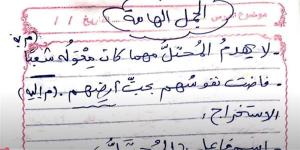 موضوع الدرس التاريخ ١١
الجمل الهامة
- لا يهدمُ المُحتلُّ مهما كانت مَعْوَلُه شعبًا (م إليه)
- فاضت نفوسُهم بحبِّ أرضِهم. (م إليه)
الاستخراج:
- اسم فاعل